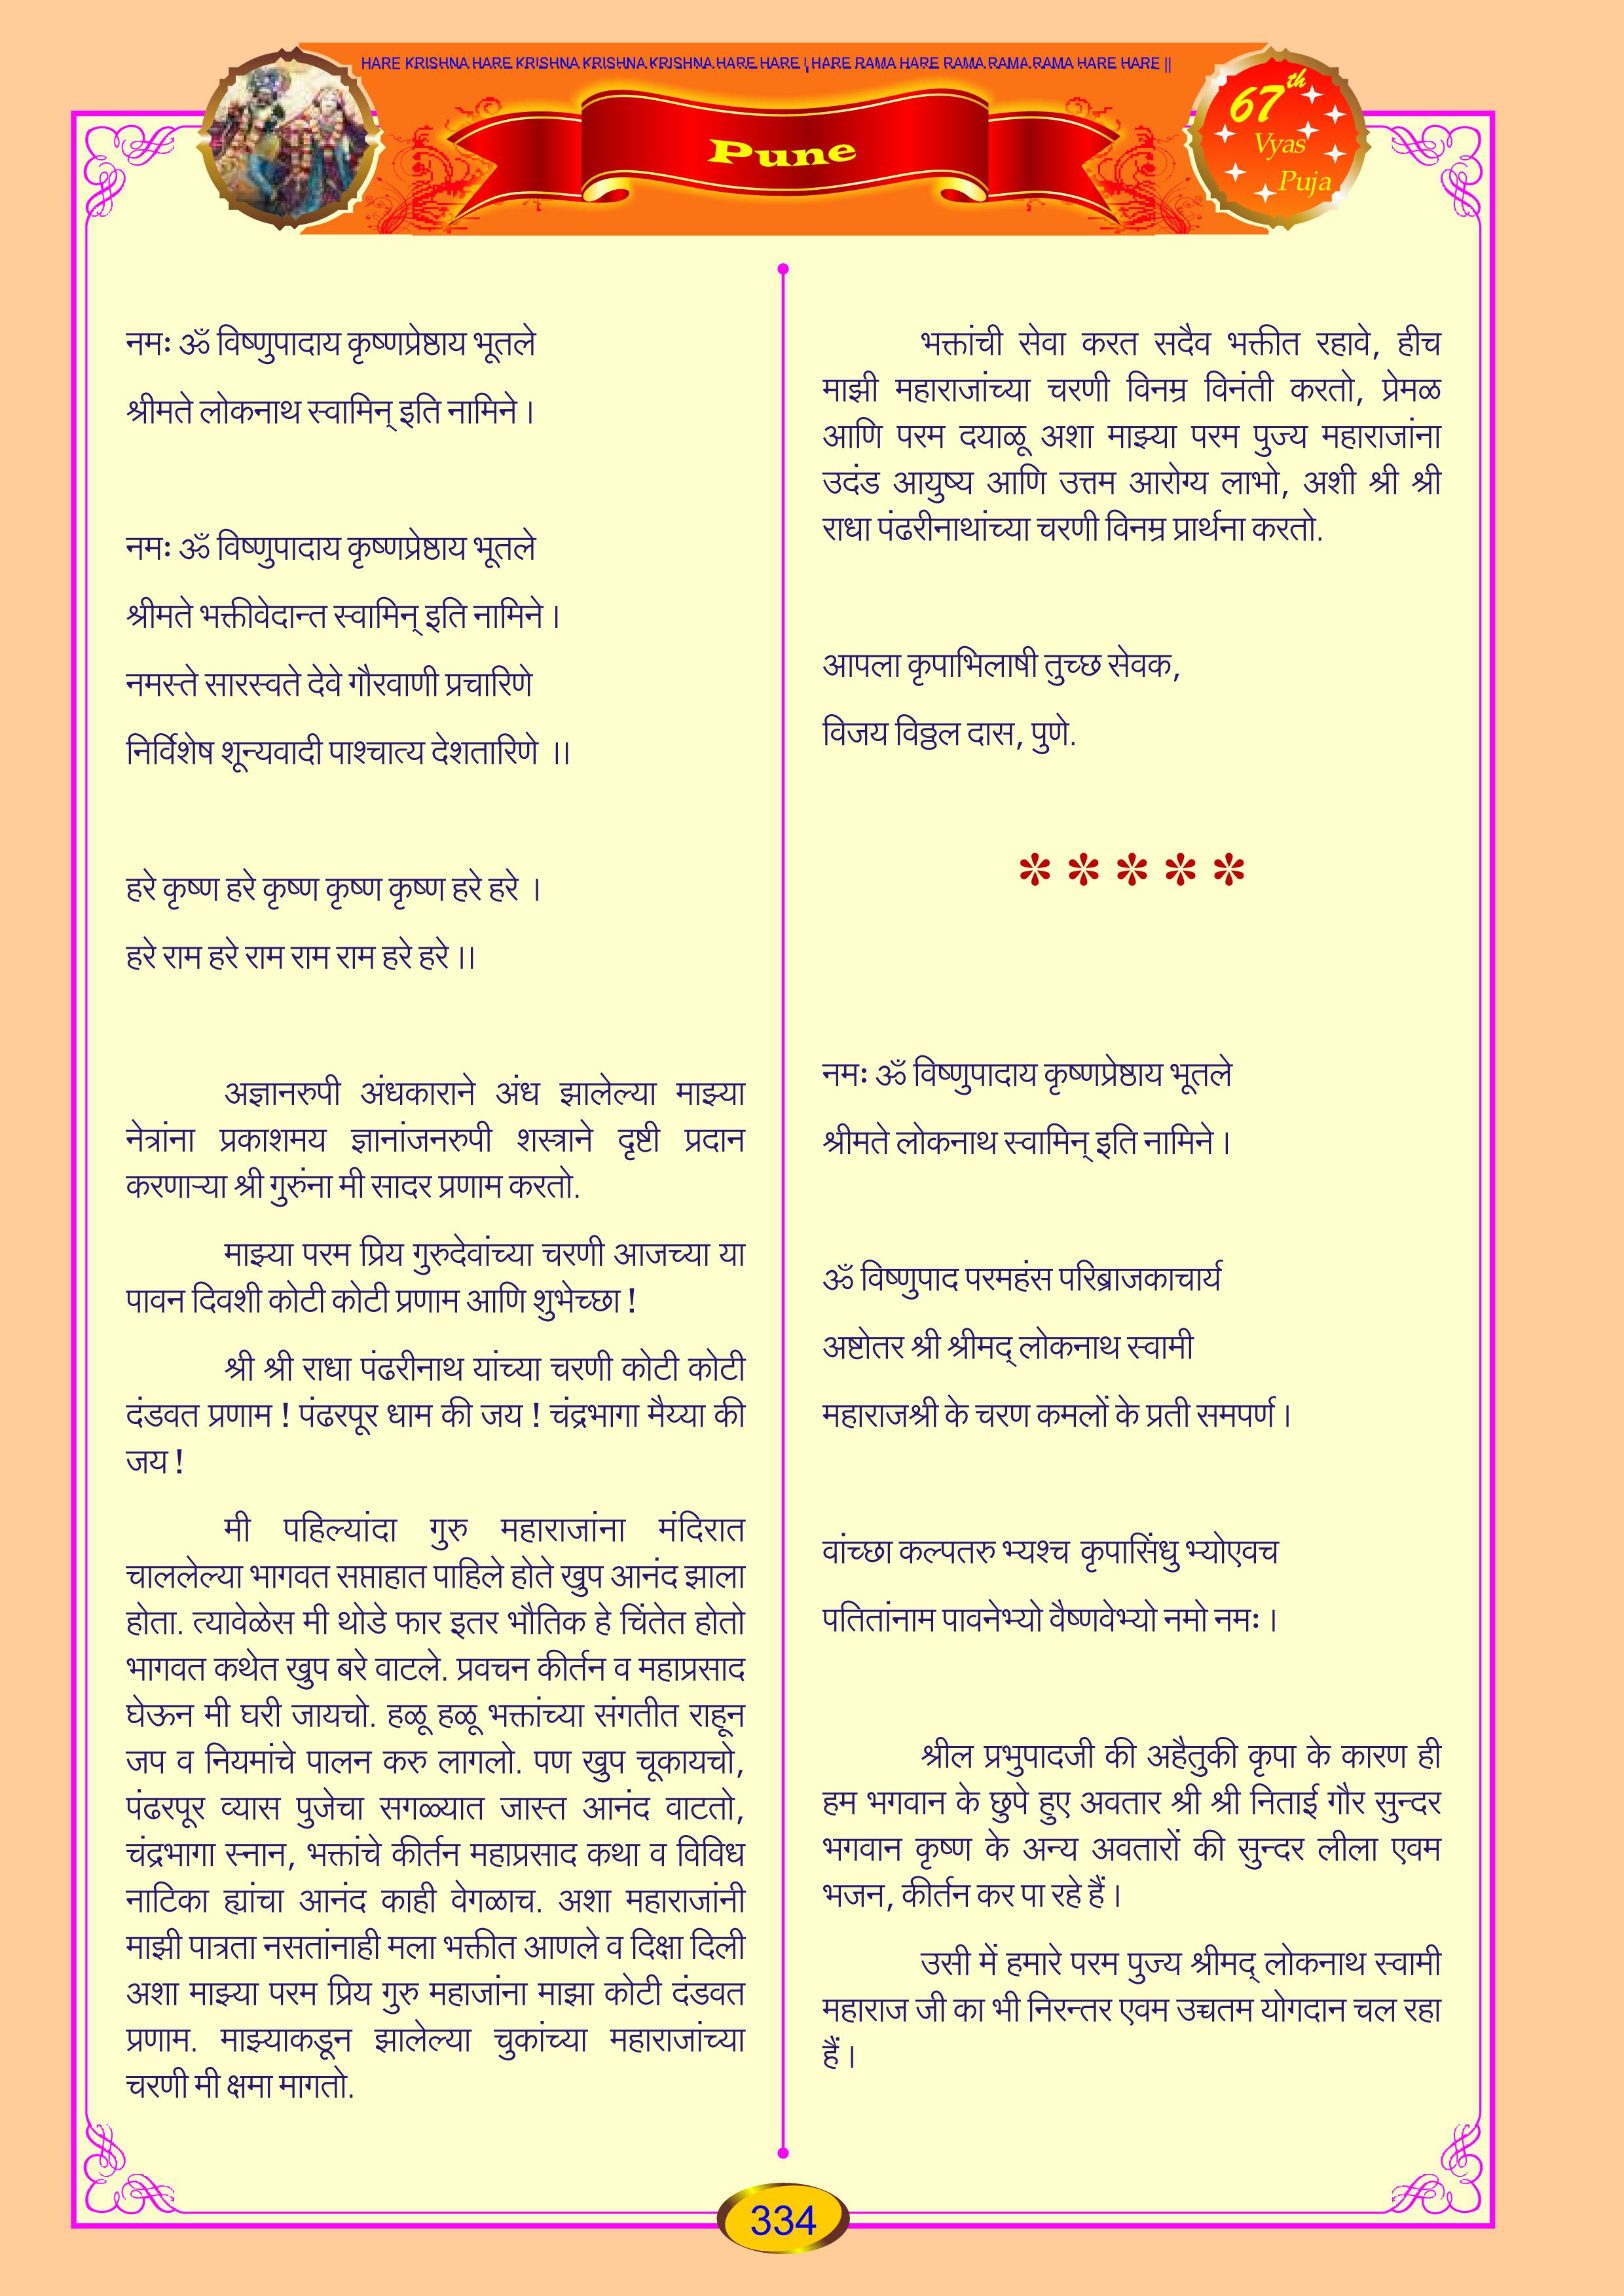 HARE KRISHNA HARE KRISHNA KRISHNA KRISHNA HARE HARE | HARE RAMA HARE RAMA RAMA RAMA HARE HARE ||
Pune
67th
Vyas
Puja
नमः ॐ विष्णुपादाय कृष्णप्रेष्ठाय भूतले
श्रीमते लोकनाथ स्वामिन् इति नामिने ।
नमः ॐ विष्णुपादाय कृष्णप्रेष्ठाय भूतले
श्रीमते भक्तीवेदान्त स्वामिन् इति नामिने ।
नमस्ते सारस्वते देवे गौरवाणी प्रचारिणे
निर्विशेष शून्यवादी पाश्चात्य देशतारिणे ।।
हरे कृष्ण हरे कृष्ण कृष्ण कृष्ण हरे हरे ।
हरे राम हरे राम राम राम हरे हरे ।।
अज्ञानरुपी अंधकाराने अंध झालेल्या माझ्या
नेत्रांना प्रकाशमय ज्ञानांजनरुपी शस्त्राने दृष्टी प्रदान
करणाऱ्या श्री गुरुंना मी सादर प्रणाम करतो.
माझ्या परम प्रिय गुरुदेवांच्या चरणी आजच्या या
पावन दिवशी कोटी कोटी प्रणाम आणि शुभेच्छा !
श्री श्री राधा पंढरीनाथ यांच्या चरणी कोटी कोटी
दंडवत प्रणाम ! पंढरपूर धाम की जय ! चंद्रभागा मैय्या की
जय !
मी पहिल्यांदा गुरु महाराजांना मंदिरात
चाललेल्या भागवत सप्ताहात पाहिले होते खुप आनंद झाला
होता. त्यावेळेस मी थोडे फार इतर भौतिक हे चिंतेत होतो
भागवत कथेत खुप बरे वाटले. प्रवचन कीर्तन व महाप्रसाद
घेऊन मी घरी जायचो. हळू हळू भक्तांच्या संगतीत राहून
जप व नियमांचे पालन करु लागलो. पण खुप चूकायचो,
पंढरपूर व्यास पुजेचा सगळ्यात जास्त आनंद वाटतो,
चंद्रभागा स्नान, भक्तांचे कीर्तन महाप्रसाद कथा व विविध
नाटिका ह्यांचा आनंद काही वेगळाच. अशा महाराजांनी
माझी पात्रता नसतांनाही मला भक्तीत आणले व दिक्षा दिली
अशा माझ्या परम प्रिय गुरु महाजांना माझा कोटी दंडवत
प्रणाम. माझ्याकडून झालेल्या चुकांच्या महाराजांच्या
चरणी मी क्षमा मागतो.
भक्तांची सेवा करत सदैव भक्तीत रहावे, हीच
माझी महाराजांच्या चरणी विनम्र विनंती करतो, प्रेमळ
आणि परम दयाळू अशा माझ्या परम पुज्य महाराजांना
उदंड आयुष्य आणि उत्तम आरोग्य लाभो, अशी श्री श्री
राधा पंढरीनाथांच्या चरणी विनम्र प्रार्थना करतो.
आपला कृपाभिलाषी तुच्छ सेवक,
विजय विठ्ठल दास, पुणे.
✽ ✽ ✽ ✽ ✽
नमः ॐ विष्णुपादाय कृष्णप्रेष्ठाय भूतले
श्रीमते लोकनाथ स्वामिन् इति नामिने ।
ॐ विष्णुपाद परमहंस परिब्राजकाचार्य
अष्टोतर श्री श्रीमद् लोकनाथ स्वामी
महाराजश्री के चरण कमलों के प्रती समपर्ण ।
वांच्छा कल्पतरु भ्यश्च कृपासिंधु भ्योएवच
पतितांनाम पावनेभ्यो वैष्णवेभ्यो नमो नमः ।
श्रील प्रभुपादजी की अहैतुकी कृपा के कारण ही
हम भगवान के छुपे हुए अवतार श्री श्री निताई गौर सुन्दर
भगवान कृष्ण के अन्य अवतारों की सुन्दर लीला एवम
भजन, कीर्तन कर पा रहे हैं ।
उसी में हमारे परम पुज्य श्रीमद् लोकनाथ स्वामी
महाराज जी का भी निरन्तर एवम उच्चतम योगदान चल रहा
हैं ।
334